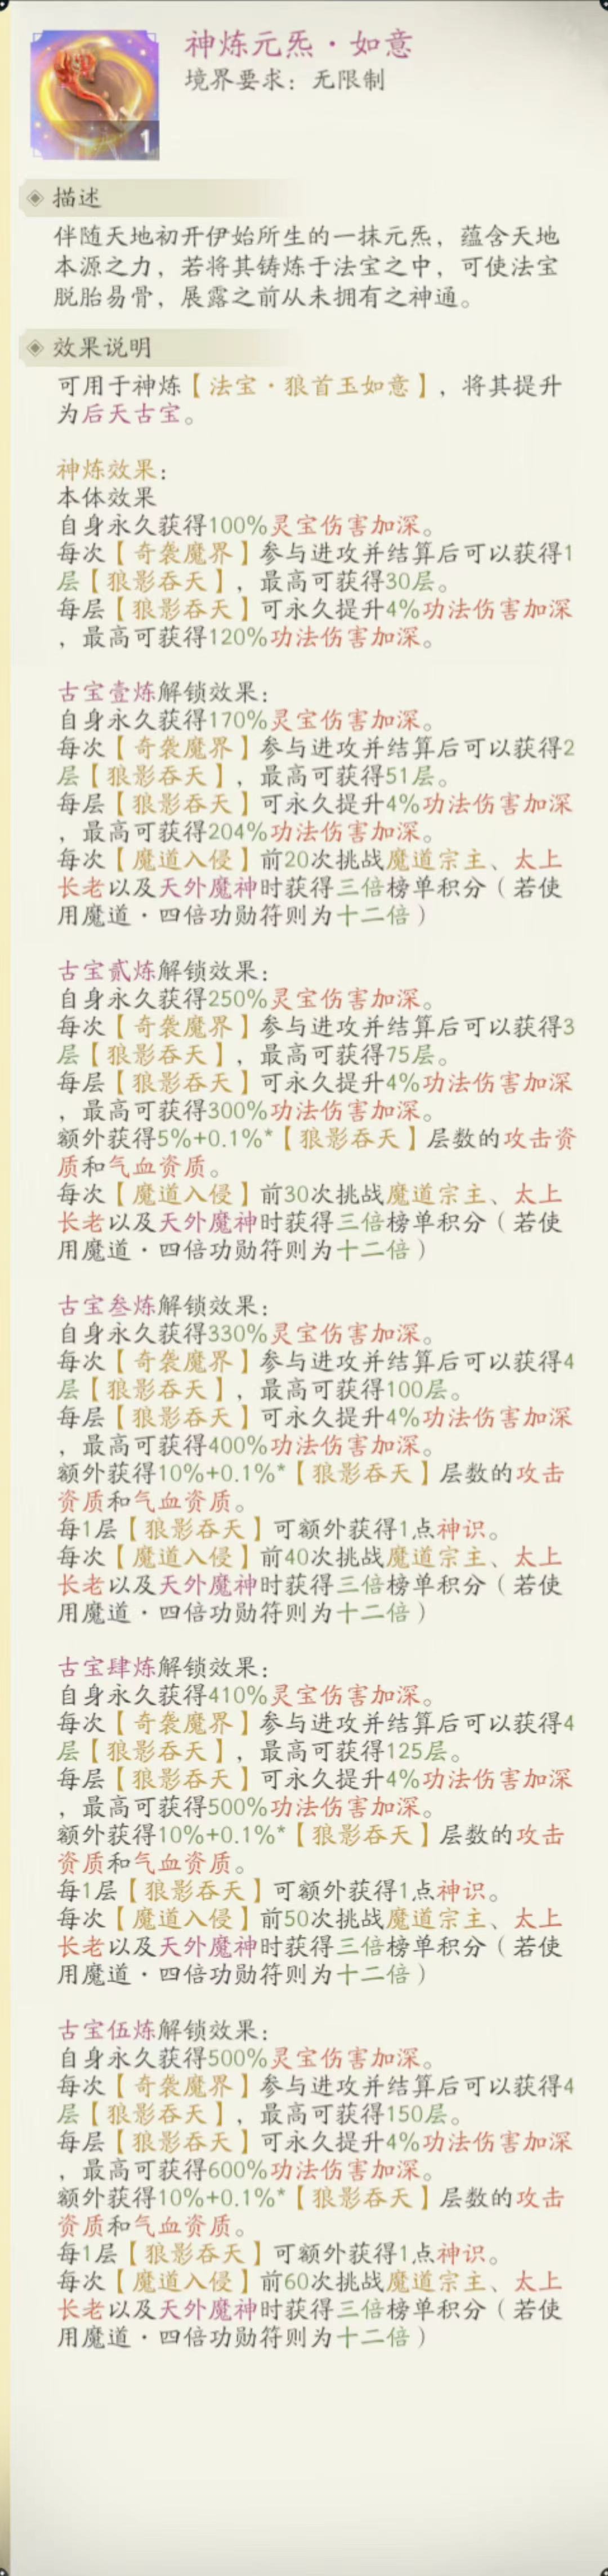 神炼元炁·如意
境界要求：无限制
1
描述
伴随天地初开伊始所生的一抹元炁，蕴含天地
本源之力，若将其铸炼于法宝之中，可使法宝
脱胎易骨，展露之前从未拥有之神通。
效果说明
可用于神炼【法宝·狼首玉如意】，将其提升
为后天古宝。
神炼效果：
本体效果
自身永久获得100%灵宝伤害加深。
每次【奇袭魔界】参与进攻并结算后可以获得1
层【狼影吞天】，最高可获得30层。
每层【狼影吞天】可永久提升4%功法伤害加深
，最高可获得120%功法伤害加深。
古宝壹炼解锁效果：
自身永久获得170%灵宝伤害加深。
每次【奇袭魔界】参与进攻并结算后可以获得2
层【狼影吞天】，最高可获得51层。
每层【狼影吞天】可永久提升4%功法伤害加深
，最高可获得204%功法伤害加深。
每次【魔道入侵】前20次挑战魔道宗主、太上
长老以及天外魔神时获得三倍榜单积分（若使
用魔道·四倍功勋符则为十二倍）
古宝贰炼解锁效果：
自身永久获得250%灵宝伤害加深。
每次【奇袭魔界】参与进攻并结算后可以获得3
层【狼影吞天】，最高可获得75层。
每层【狼影吞天】可永久提升4%功法伤害加深
，最高可获得300%功法伤害加深。
额外获得5%+0.1%*【狼影吞天】层数的攻击资
质和气血资质。
每次【魔道入侵】前30次挑战魔道宗主、太上
长老以及天外魔神时获得三倍榜单积分（若使
用魔道·四倍功勋符则为十二倍）
古宝叁炼解锁效果：
自身永久获得330%灵宝伤害加深。
每次【奇袭魔界】参与进攻并结算后可以获得4
层【狼影吞天】，最高可获得100层。
每层【狼影吞天】可永久提升4%功法伤害加深
，最高可获得400%功法伤害加深。
额外获得10%+0.1%*【狼影吞天】层数的攻击
资质和气血资质。
每1层【狼影吞天】可额外获得1点神识。
每次【魔道入侵】前40次挑战魔道宗主、太上
长老以及天外魔神时获得三倍榜单积分（若使
用魔道·四倍功勋符则为十二倍）
古宝肆炼解锁效果：
自身永久获得410%灵宝伤害加深。
每次【奇袭魔界】参与进攻并结算后可以获得4
层【狼影吞天】，最高可获得125层。
每层【狼影吞天】可永久提升4%功法伤害加深
，最高可获得500%功法伤害加深。
额外获得10%+0.1%*【狼影吞天】层数的攻击
资质和气血资质。
每1层【狼影吞天】可额外获得1点神识。
每次【魔道入侵】前50次挑战魔道宗主、太上
长老以及天外魔神时获得三倍榜单积分（若使
用魔道·四倍功勋符则为十二倍）
古宝伍炼解锁效果：
自身永久获得500%灵宝伤害加深。
每次【奇袭魔界】参与进攻并结算后可以获得4
层【狼影吞天】，最高可获得150层。
每层【狼影吞天】可永久提升4%功法伤害加深
，最高可获得600%功法伤害加深。
额外获得10%+0.1%*【狼影吞天】层数的攻击
资质和气血资质。
每1层【狼影吞天】可额外获得1点神识。
每次【魔道入侵】前60次挑战魔道宗主、太上
长老以及天外魔神时获得三倍榜单积分（若使
用魔道·四倍功勋符则为十二倍）